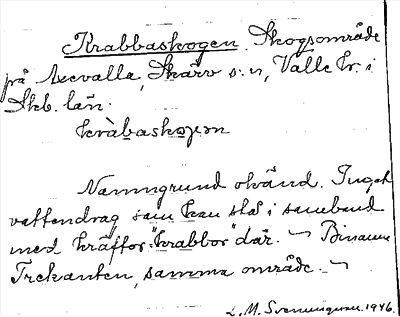 Krabbaskogen. Skogsområde
på Axevalla, Skärv s:n, Valle hr. i
Skb. län.
kràbaskoᶇen
Namngrund okänd. Inget
vattendrag som kan stå i samband
med kräftor "krabbor" där. ~ Binamn
Trekanten, samma område. ~
L. M. Svenungsson. 1946.